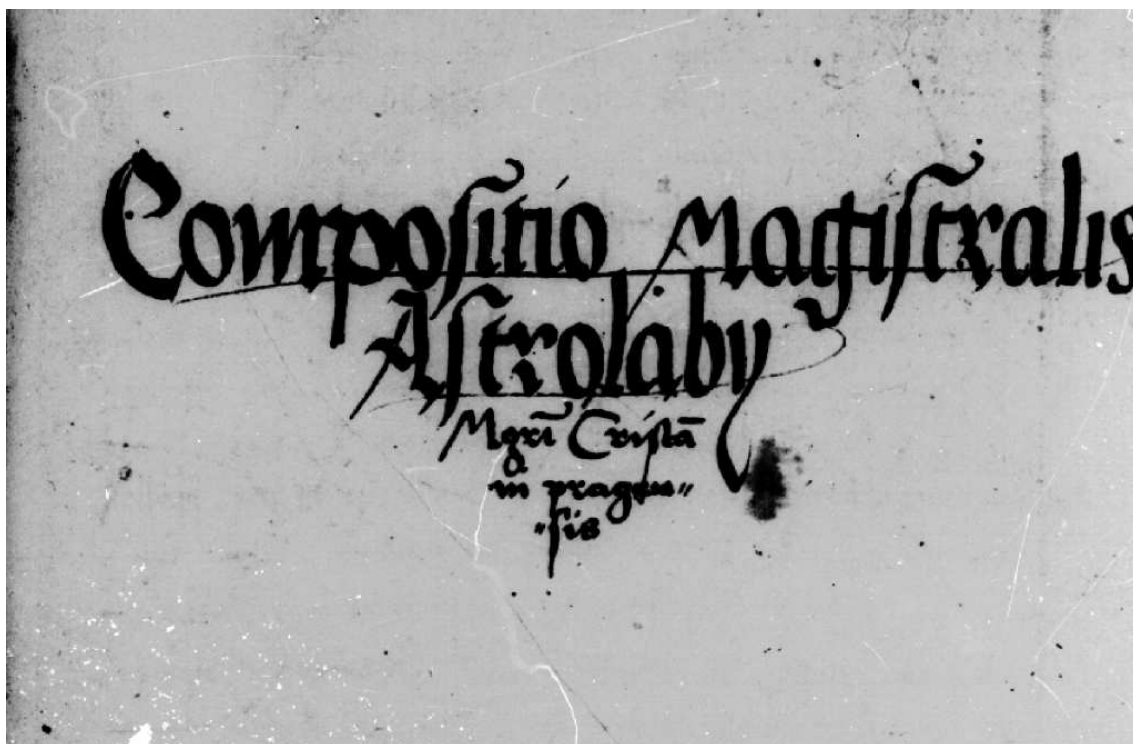 Compoſitio Magiſtralis
Aſtrolaby
Mgri̅ Criſta̅
ni pragen〃
〃ſis